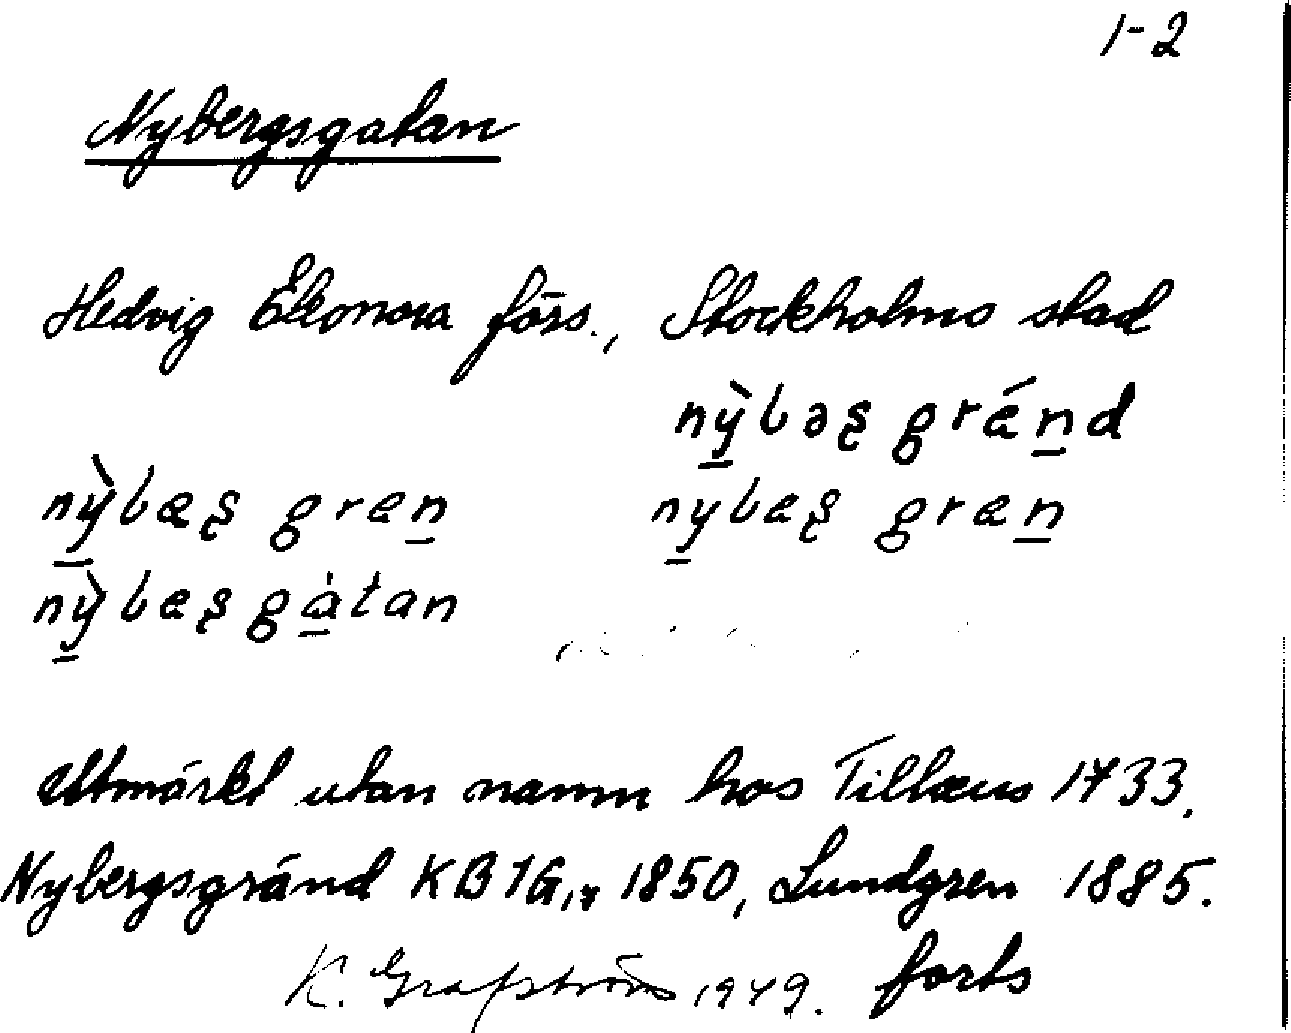 1-2
Nybergsgatan
Hedvig Eleonora förs., Stockholms stad
nỳ̱bəʂ grén̠d
nỳ̱bæʂ græn̠ ny̱bæʂ græn̠
nỳ̱bæʂgà̱tan
Utmärkt utan namn hos Tillæus 1733.
Nybergsgränd KB 1G,17 1850, Lundgren 1885.
K. Grafström 1949. forts